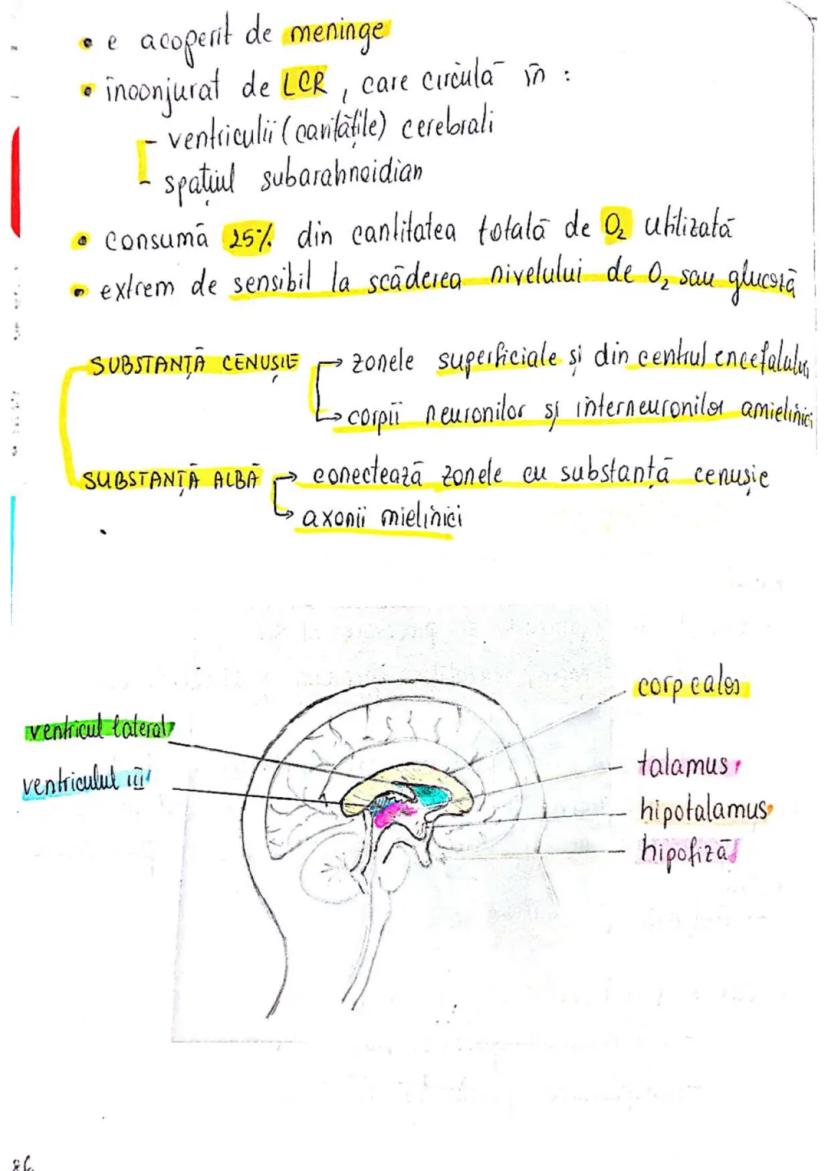 • e acoperit de meninge
• înconjurat de LCR, care circulă în :
- ventriculii (cavitățile) cerebrali
- spațiul subarahnoidian
• consumă 25% din cantitatea totală de O₂ utilizată
• extrem de sensibil la scăderea nivelului de O₂ sau glucoză
SUBSTANȚĂ CENUȘIE → zonele superficiale și din centrul encefalului
→ corpii neuronilor și interneuronilor amielinici
SUBSTANȚĂ ALBĂ → conectează zonele cu substanță cenușie
→ axonii mielinici
corp calos
ventricul lateral
talamus
ventriculul III
hipotalamus
hipofiză
86